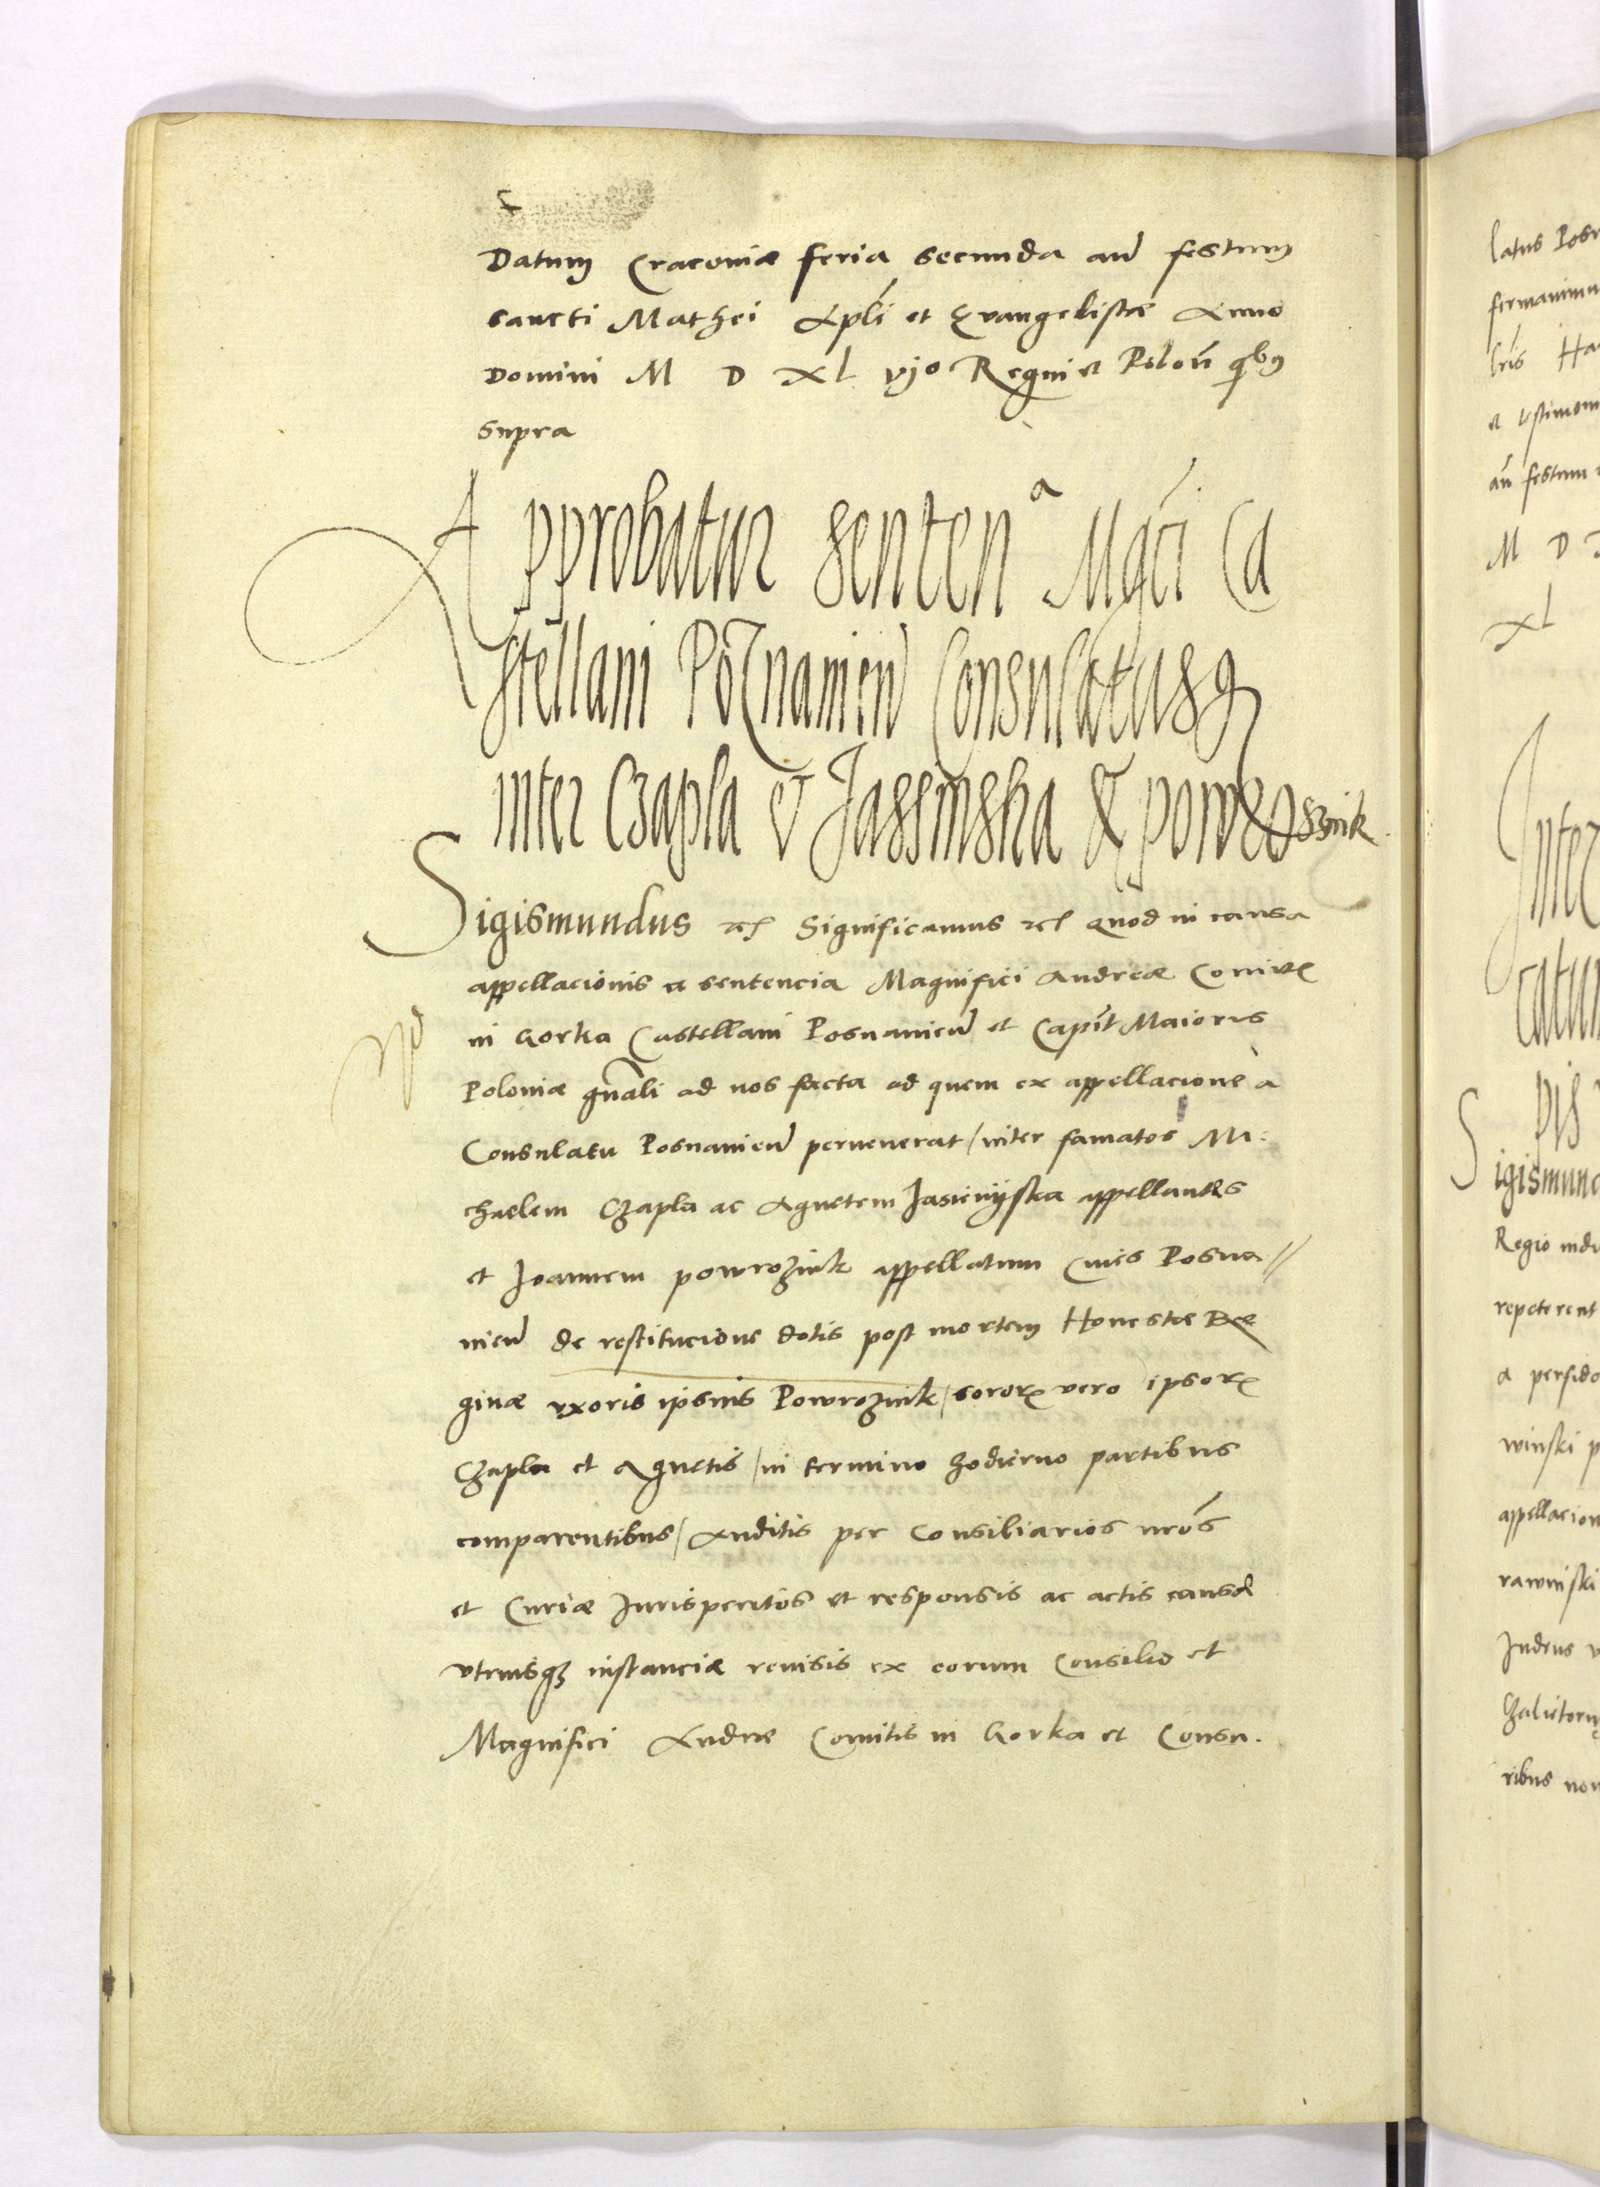 Datum Cracoviæ feria secunda an̄ festum
sancti Mathei Apl̄i et Evangelistæ Anno
Domini M D XL vjo Regni et Polon̄ qibus
supra
Approbatur senten a Mgci Ca
stellani Poznanien Consulatusq
inter Czapla et Jassinska & powro sznik
Sigismundus etc Significamus etc Quod in causa
appellacionis a sentencia Magnifici Andreæ Comitis
in Gorka Castellani Posnanien et Capit Maioris
Poloniæ gn̄ali ad nos facta ad quem ex appellacione à
Consulatu Posnanien pervenerat / inter famatos Mi:
chaelem Czapla ac Agnetem Jasienÿska appellantes
et Joannem powroznik appellatum Cives Posna //
nien de restitucione dotis post mortem Honestæ Re
ginæ vxoris ipsius Powroznik / soror vero ipsor
Czapla et Agnetis / in termino hodierno partibus
comparentibus / Auditis per Consiliarios nr̄os
et Curiæ Jurisperitos et responsis ac actis causæ
vtriusq instanciæ revisis ex eorum Consilio et
Magnifici Andreæ Comitis in Gorka et Consu.
latus Posn
firmavimu
lr̄is Ha
et testimoni
an̄ festum
M D
XL
Inter
catum
pis
Sigismund
Regio
repeterent
a persido
winski p
appellacion
rawinski
Judeus v
ribus non